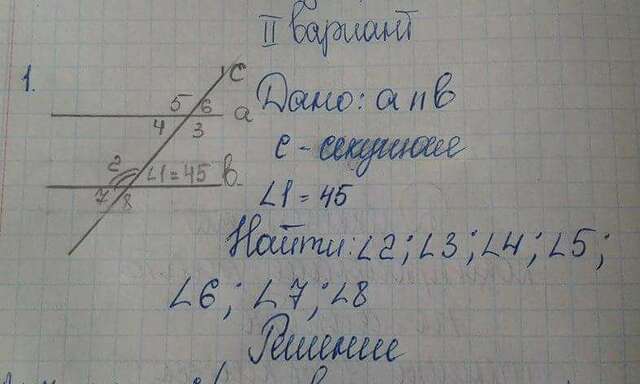 II вариант
1.
c
5 6
a
4 3
2
∠1=45 в
7 8
Дано: a II в
c - секущая
∠1 = 45
Найти: ∠2; ∠3; ∠4; ∠5;
∠6; ∠7; ∠8
Решение